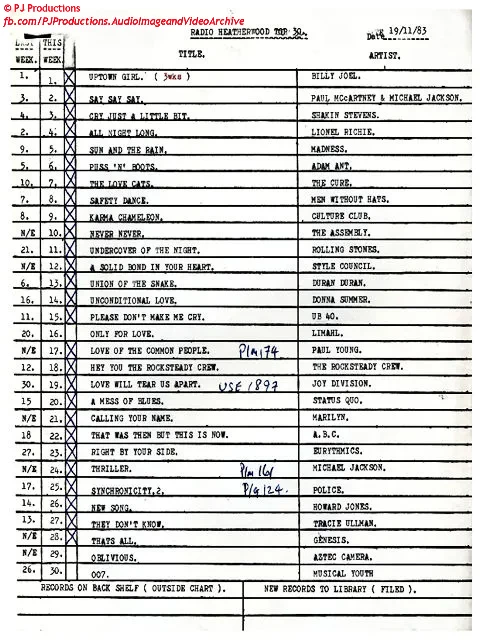 © PJ Productions
fb.com/PJProductions.AudioImageandRadioArchive
RADIO HEATHERWOOD TOP 30. Date 19/11/83
LAST THIS
WEEK. WEEK. TITLE. ARTIST.
1. 1. UPTOWN GIRL. ( 3wks ) BILLY JOEL.
3. 2. SAY SAY SAY. PAUL McCARTNEY & MICHAEL JACKSON.
4. 3. CRY JUST A LITTLE BIT. SHAKIN STEVENS.
2. 4. ALL NIGHT LONG. LIONEL RICHIE.
9. 5. SUN AND THE RAIN. MADNESS.
5. 6. PUSS 'N' BOOTS. ADAM ANT.
10. 7. THE LOVE CATS. THE CURE.
7. 8. SAFETY DANCE. MEN WITHOUT HATS.
8. 9. KARMA CHAMELEON. CULTURE CLUB.
N/E 10. NEVER NEVER. THE ASSEMBLY.
21. 11. UNDERCOVER OF THE NIGHT. ROLLING STONES.
N/E 12. A SOLID BOND IN YOUR HEART. STYLE COUNCIL.
6. 13. UNION OF THE SNAKE. DURAN DURAN.
16. 14. UNCONDITIONAL LOVE. DONNA SUMMER.
11. 15. PLEASE DON'T MAKE ME CRY. UB 40.
20. 16. ONLY FOR LOVE. LIMAHL.
N/E 17. LOVE OF THE COMMON PEOPLE. P/m 174 PAUL YOUNG.
12. 18. HEY YOU THE ROCKSTEADY CREW. THE ROCKSTEADY CREW.
30. 19. LOVE WILL TEAR US APART. USE 1897 JOY DIVISION.
15 20. A MESS OF BLUES. STATUS QUO.
N/E 21. CALLING YOUR NAME. MARILYN.
18 22. THAT WAS THEN BUT THIS IS NOW. A.B.C.
27. 23. RIGHT BY YOUR SIDE. EURYTHMICS.
N/E 24. THRILLER. P/m 161 MICHAEL JACKSON.
17. 25. SYNCHRONICITY.2. P/g 124. POLICE.
14. 26. NEW SONG. HOWARD JONES.
13. 27. THEY DON'T KNOW. TRACIE ULLMAN.
N/E 28. THATS ALL. GENESIS.
N/E 29. OBLIVIOUS. AZTEC CAMERA.
26. 30. 007. MUSICAL YOUTH
RECORDS ON BACK SHELF ( OUTSIDE CHART ). NEW RECORDS TO LIBRARY ( FILED ).